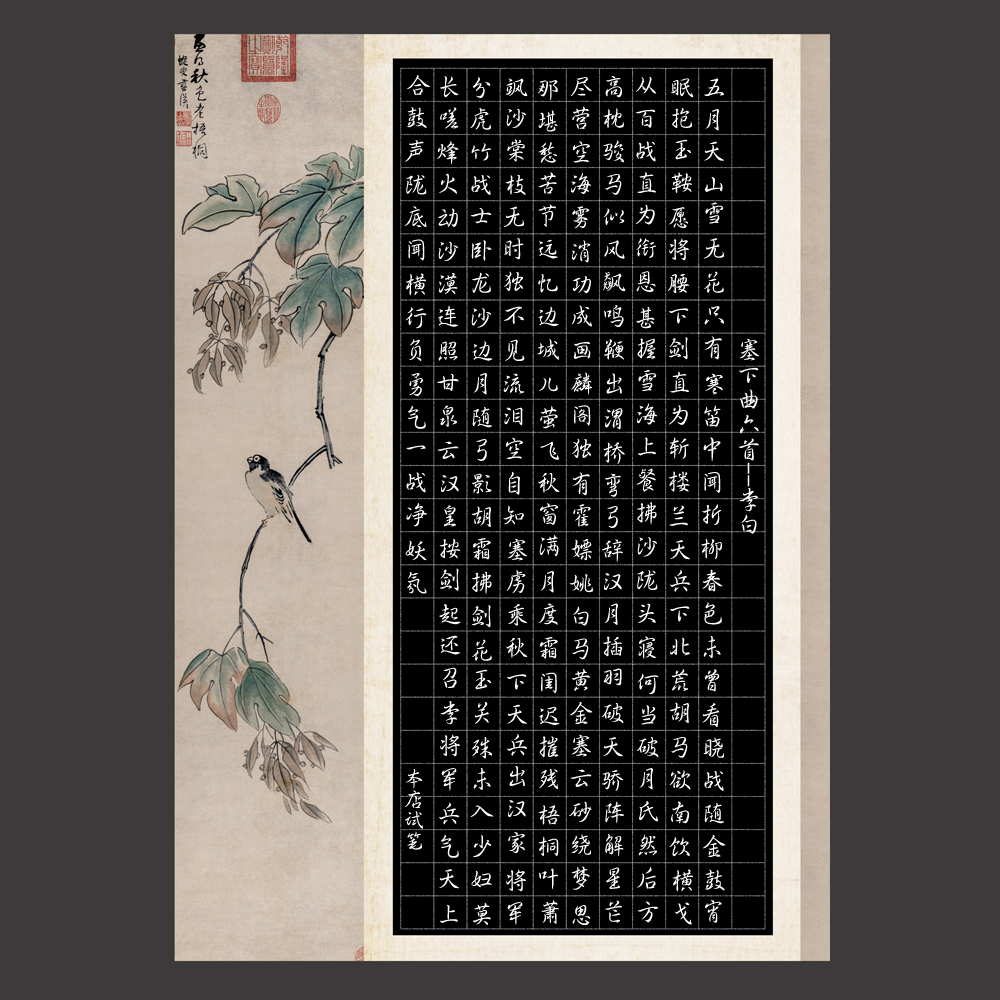 塞下曲六首—李白
五月天山雪无花只有寒笛中闻折柳春色未曾看晓战随金鼓宵
眠抱玉鞍愿将腰下剑直为斩楼兰天兵下北荒胡马欲南饮横戈
从百战直为衔恩甚握雪海上餐拂沙陇头寝何当破月氏然后方
高枕骏马似风飙鸣鞭出渭桥弯弓辞汉月插羽破天骄阵解星芒
尽营空海雾消功成画麟阁独有霍嫖姚白马黄金塞云砂绕梦思
那堪愁苦节远忆边城儿萤飞秋窗满月度霜闺迟摧残梧桐叶萧
飒沙棠枝无时独不见流泪空自知塞虏乘秋下天兵出汉家将军
分虎竹战士卧龙沙边月随弓影胡霜拂剑花玉关殊未入少妇莫
长嗟烽火动沙漠连照甘泉云汉皇按剑起还召李将军兵气天上
合鼓声陇底闻横行负勇气一战净妖氛
本店试笔
秋色老梧桐